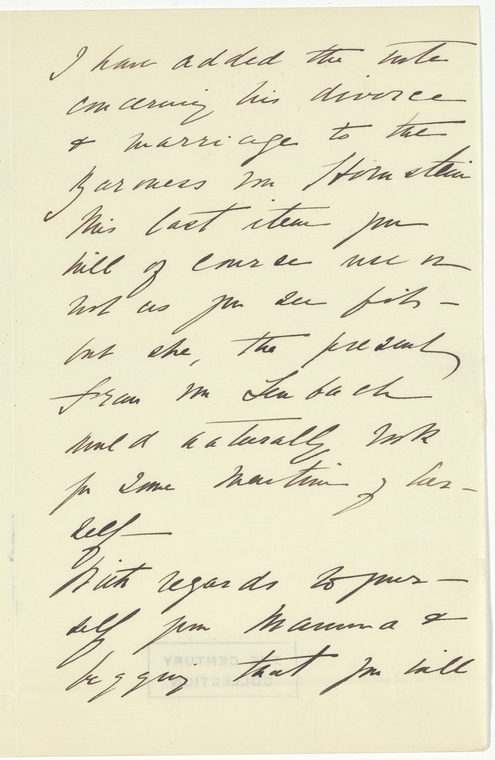 I have added the note
concerning his divorce
& marriage to the
Baroness von Hornstein
this last item you
will of course use or
not as you see fit –
but she, the present
Frau von Lenbach
would naturally look
for some mention of her-
self –
With regards to your-
self your Mamma &
begging that you will
CENTURY
COLLECTION